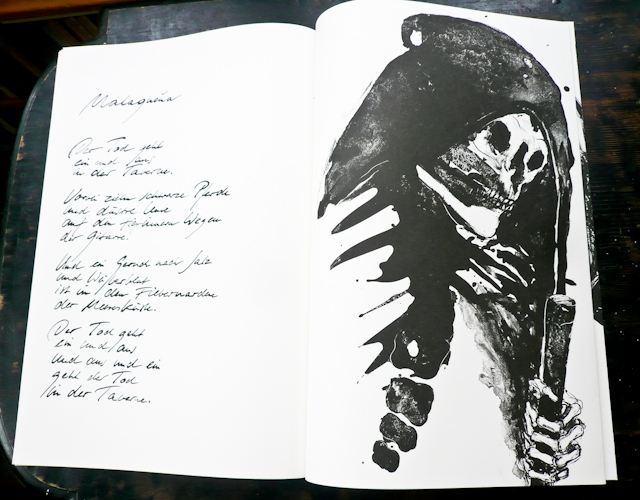 Malagueña
Der Tod geht
ein und aus
in der Taverne.
Vorbei ziehn schwarze Pferde
und düstre Leute
auf den Wegen
der Gitarre.
Und ein Geruch nach Salz
und Weiberblut
ist in den Fiebernarden
der Meeresküste.
Der Tod geht
ein und aus
und aus und ein
geht der Tod
in der Taverne.